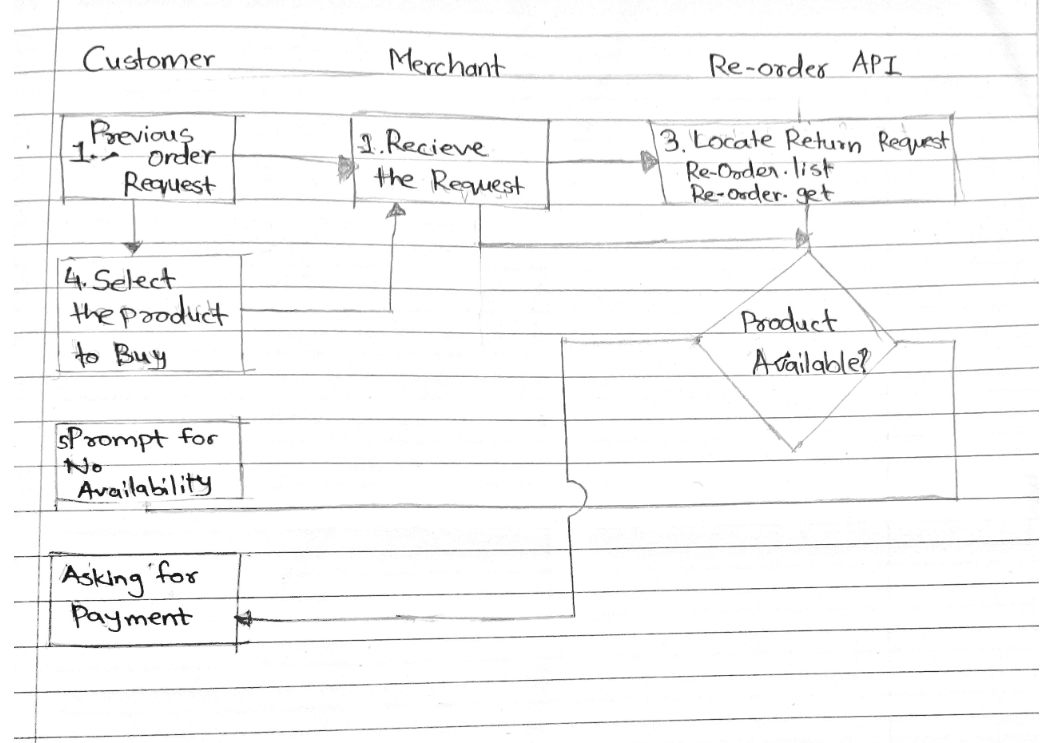 Customer
Merchant
Re-order API
1. Previous
order
Request
2. Recieve
the Request
3. Locate Return Request
Re-Order.list
Re-order.get
4. Select
the product
to Buy
Product
Available?
5 Prompt for
No
Availability
Asking for
Payment